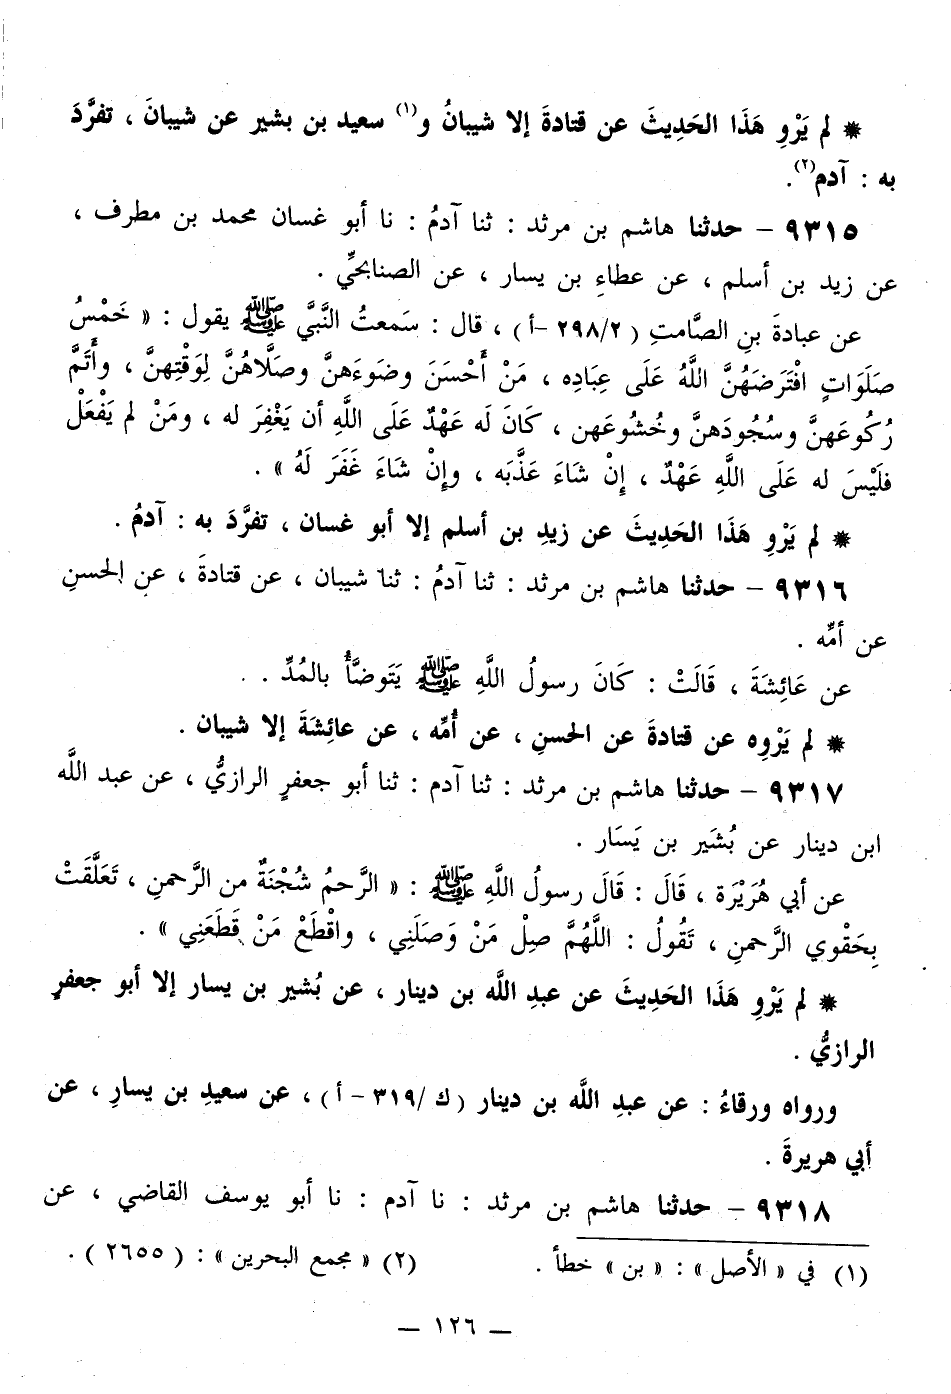 ✵ لم يَرْوِ هَذَا الحَدِيثَ عن قتادةَ إلا شيبانُ و(١) سعيد بن بشير عن شيبانَ ، تفرَّدَ
به : آدم(٢).
٩٣١٥ – حدثنا هاشم بن مرثد : ثنا آدمُ : نا أبو غسان محمد بن مطرف ،
عن زيد بن أسلم ، عن عطاءِ بن يسار ، عن الصنابحيِّ .
عن عبادةَ بنِ الصَّامتِ (٢٩٨/٢ –أ) ، قال : سَمعتُ النَّبيَّ ﷺ يقول : « خَمْسُ
صَلَوَاتٍ افْتَرَضَهُنَّ اللَّهُ عَلَى عِبَادِه ، مَنْ أَحْسَنَ وضَوءَهنَّ وصَلَّاهُنَّ لِوَقْتِهنَّ ، وأتَمَّ
رُكُوعَهنَّ وسُجُودَهنَّ وخُشُوعَهن ، كَانَ لَه عَهْدٌ عَلَى اللَّهِ أن يَغْفِرَ له ، ومَنْ لم يَفْعَلْ
فلَيْسَ له عَلَى اللَّهِ عَهْدٌ ، إنْ شَاءَ عَذَّبَه ، وإنْ شَاءَ غَفَرَ لَهُ » .
✵ لم يَرْوِ هَذَا الحَدِيثَ عن زيدِ بن أسلم إلا أبو غسان ، تفرَّدَ به : آدمُ .
٩٣١٦ – حدثنا هاشم بن مرثد : ثنا آدمُ : ثنا شيبان ، عن قتادةَ ، عن الحسنِ
عن أمِّه .
عن عَائِشَةَ ، قَالَتْ : كَانَ رسولُ اللَّهِ ﷺ يَتَوضَّأُ بالمُدِّ .
✵ لم يَرْوِه عن قتادةَ عن الحسنِ ، عن أُمِّه ، عن عائِشَةَ إلا شيبان .
٩٣١٧ – حدثنا هاشم بن مرثد : ثنا آدم : ثنا أبو جعفرٍ الرازيُّ ، عن عبد اللَّه
ابن دينار عن بُشَير بن يَسَار .
عن أبي هُرَيْرَة ، قَالَ : قَالَ رسولُ اللَّهِ ﷺ : « الرَّحمُ شُجْنَةٌ من الرَّحمنِ ، تَعَلَّقَتْ
بِحَقْوي الرَّحمنِ ، تَقُولُ : اللَّهُمَّ صِلْ مَنْ وَصَلَنِي ، واقْطَعْ مَنْ قَطَعَنِي » .
✵ لم يَرْوِ هَذَا الحَدِيثَ عن عبدِ اللَّه بن دينار ، عن بُشير بن يسار إلا أبو جعفرٍ
الرازيُّ .
ورواه ورقاءُ : عن عبدِ اللَّه بن دينار (ك/٣١٩ –أ) ، عن سعيدِ بن يسارِ ، عن
أبي هريرةَ .
٩٣١٨ – حدثنا هاشم بن مرثد : نا آدم : نا أبو يوسف القاضي ، عن
(١) في « الأصل » : « بن » خطأ . (٢) « مجمع البحرين » : (٢٦٥٥) .
– ١٢٦ –